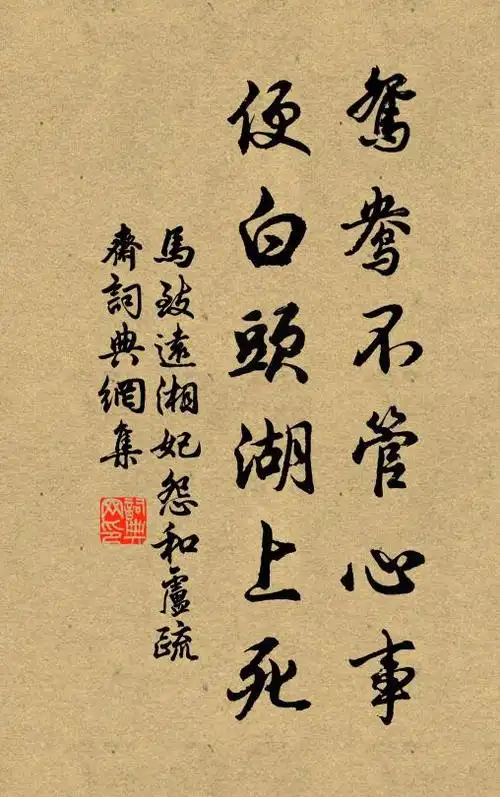 鴛鴦不管心事
便白頭湖上死
馬致遠湘妃怨和盧疏
齋詞典網集
詞典
网印